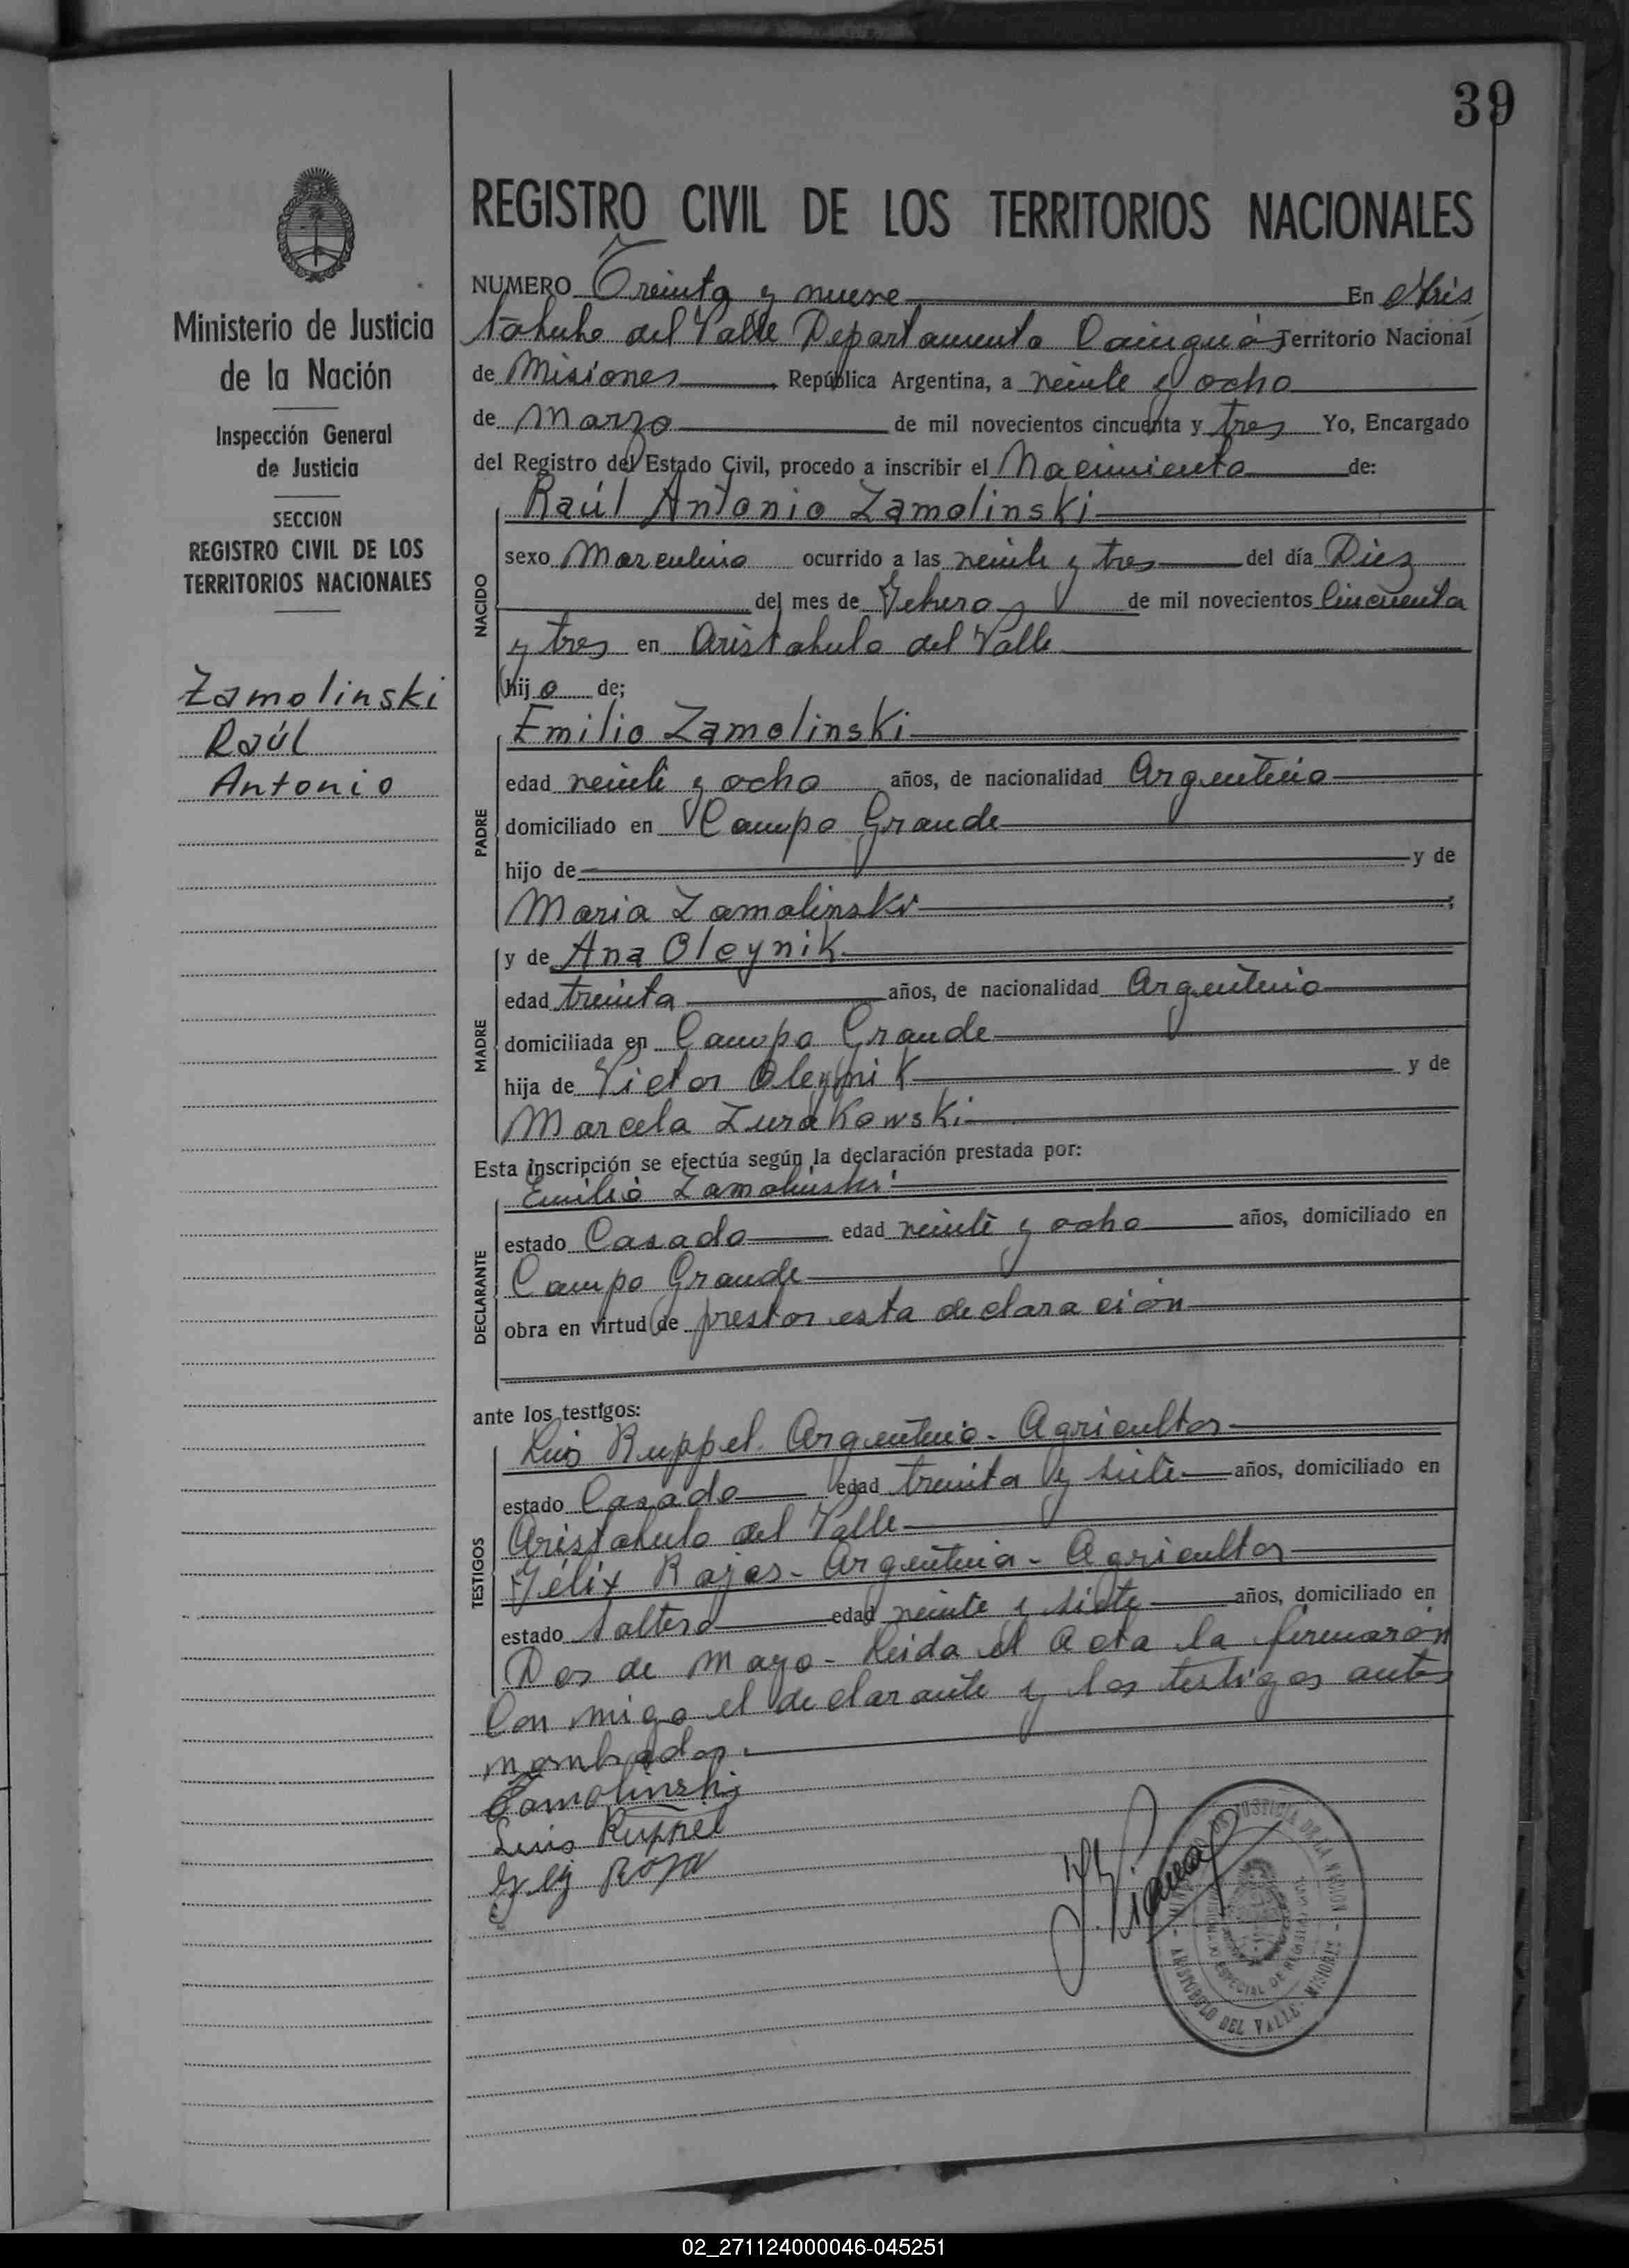 39
Ministerio de Justicia
de la Nación
Inspección General
de Justicia
SECCION
REGISTRO CIVIL DE LOS
TERRITORIOS NACIONALES
Zamolinski
Raúl
Antonio
REGISTRO CIVIL DE LOS TERRITORIOS NACIONALES
NUMERO Treinta y nueve En Aris
tóbulo del Valle Departamento Cainguás Territorio Nacional
de Misiones República Argentina, a veinte y ocho
de Marzo de mil novecientos cincuenta y tres Yo, Encargado
del Registro del Estado Civil, procedo a inscribir el Nacimiento de:
NACIDO
Raúl Antonio Zamolinski
sexo Masculino ocurrido a las veinte y tres del día Diez
del mes de Febrero de mil novecientos Cincuenta
y tres en Aristobulo del Valle
hijo de;
PADRE
Emilio Zamolinski
edad veinte y ocho años, de nacionalidad Argentino
domiciliado en Campo Grande
hijo de y de
Maria Zamolinski ;
MADRE
y de Ana Oleynik
edad treinta años, de nacionalidad Argentino
domiciliada en Campo Grande
hija de Victor Oleynik y de
Marcela Zurakowski
Esta inscripción se efectúa según la declaración prestada por:
DECLARANTE
Emilio Zamolinski
estado Casado edad veinte y ocho años, domiciliado en
Campo Grande
obra en virtud de prestar esta declaración
ante los testigos:
TESTIGOS
Luis Ruppel. Argentino - Agricultor
estado Casado edad treinta y siete años, domiciliado en
Aristobulo del Valle
Félix Rojas - Argentino - Agricultor
estado Soltero edad veinte y siete años, domiciliado en
Dos de Mayo - Leida el Acta la firmarón
Con migo el declarante y los testigos antes
nombrados.
Zamolinski
Luis Ruppel
JUSTICIA DE LA NACION
ESPECIAL DE
ARISTOBULO DEL VALLE - MISIONES
02_271124000046-045251